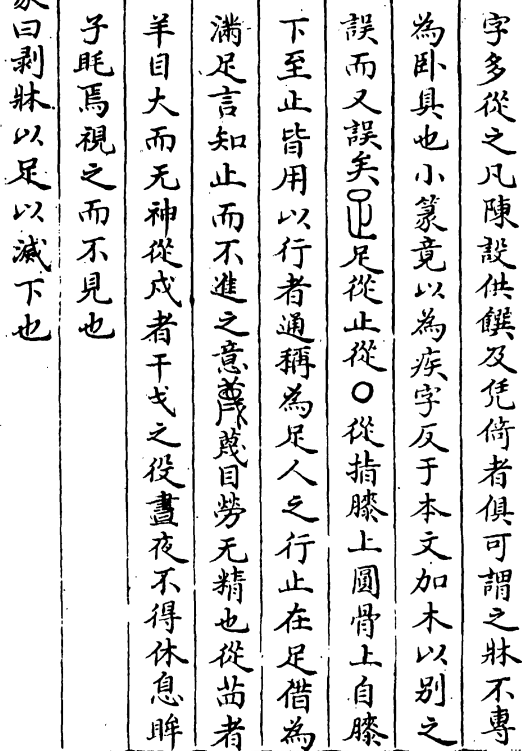 字多從之凡陳設供饌及凭倚者俱可謂之牀不專
為卧具也小篆竟以為疾字反于本文加木以别之
誤而又誤矣足從止從〇從指膝上圓骨上自膝
下至止皆用以行者通稱為足人之行止在足借為
滿足言知止而不進之意蔑目勞无精也從苗者
羊目大而无神從戍者干戈之役晝夜不得休息眸
子眊焉視之而不見也
曰剥牀以足以滅下也